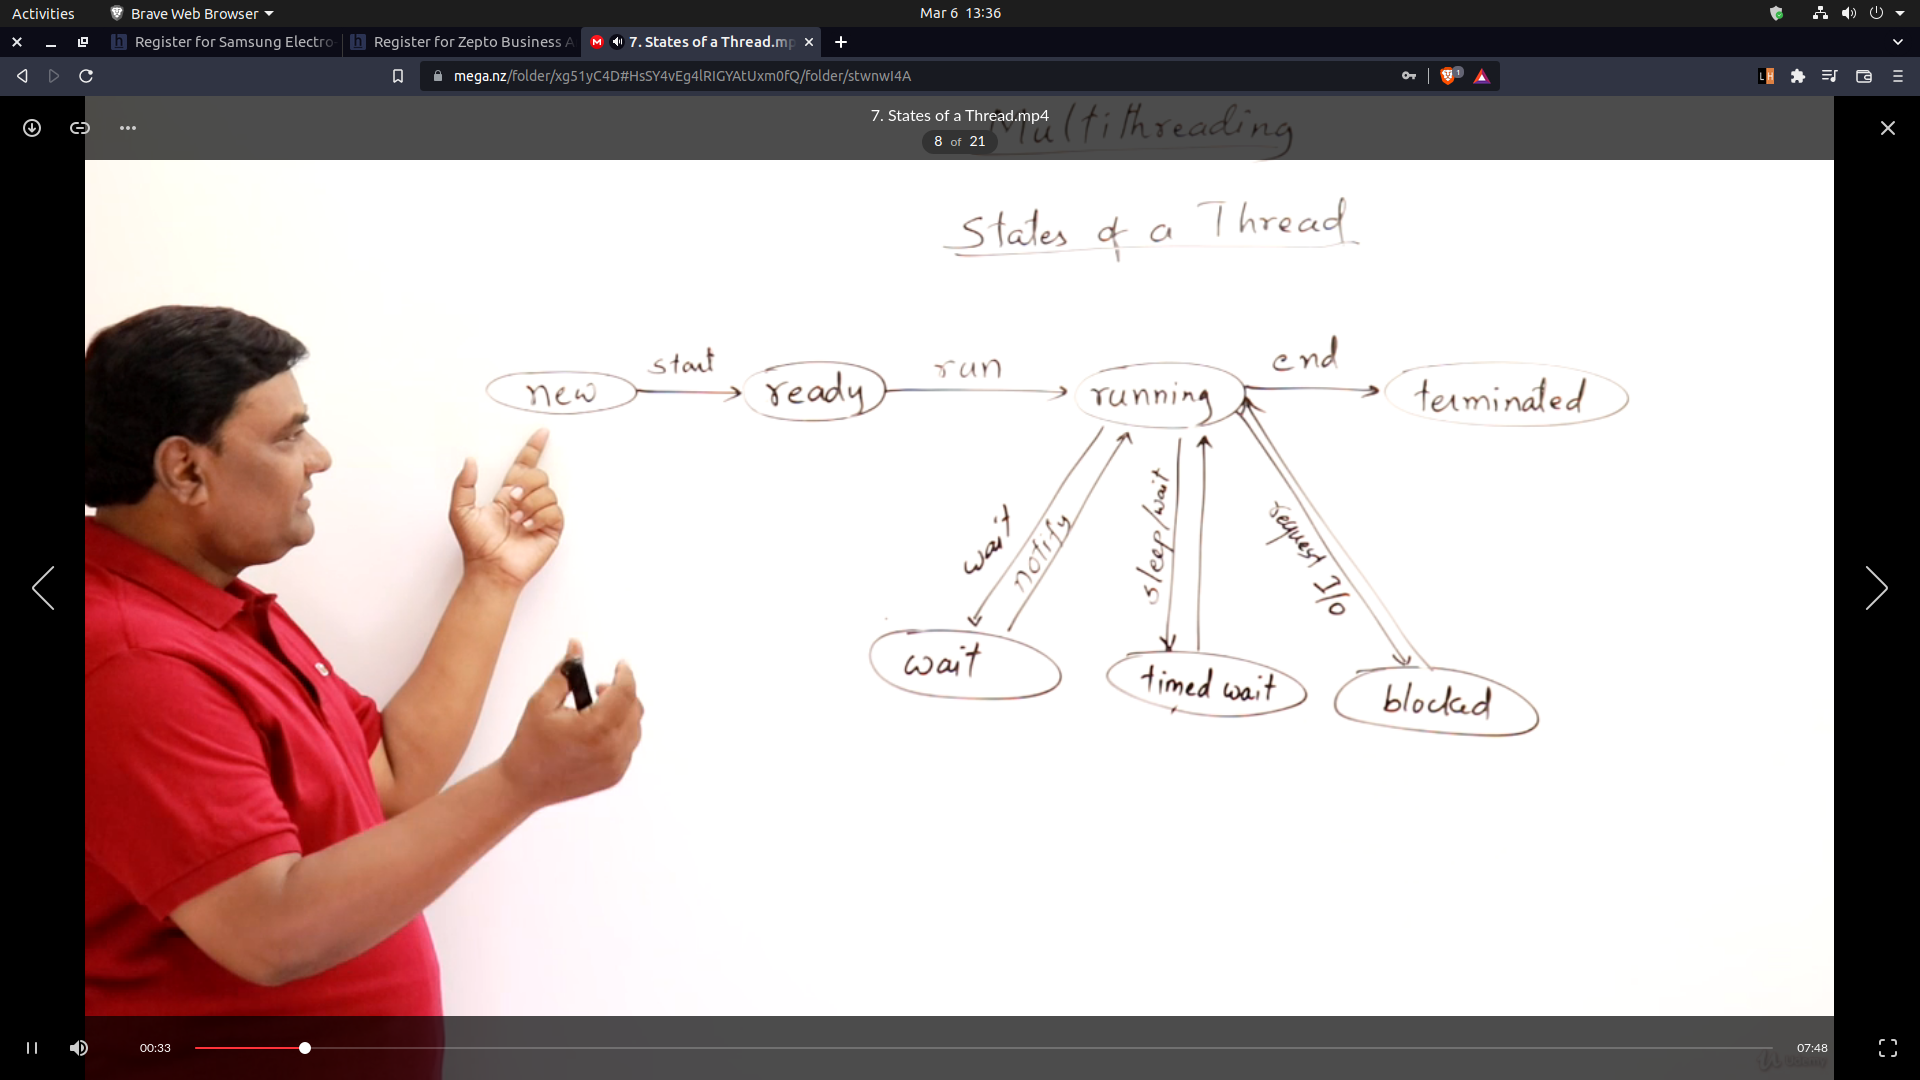 Activities Brave Web Browser Mar 6 13:36
Register for Samsung Electro Register for Zepto Business A 7. States of a Thread.mp
mega.nz/folder/xg51yC4D#HsSY4vEg4lRIGYAtUxm0fQ/folder/stwnwI4A 1
7. States of a Thread.mp4
8 of 21
Multithreading
States of a Thread
start run end
new ready running terminated
wait notify sleep/wait request I/O
wait timed wait blocked
00:33 07:48